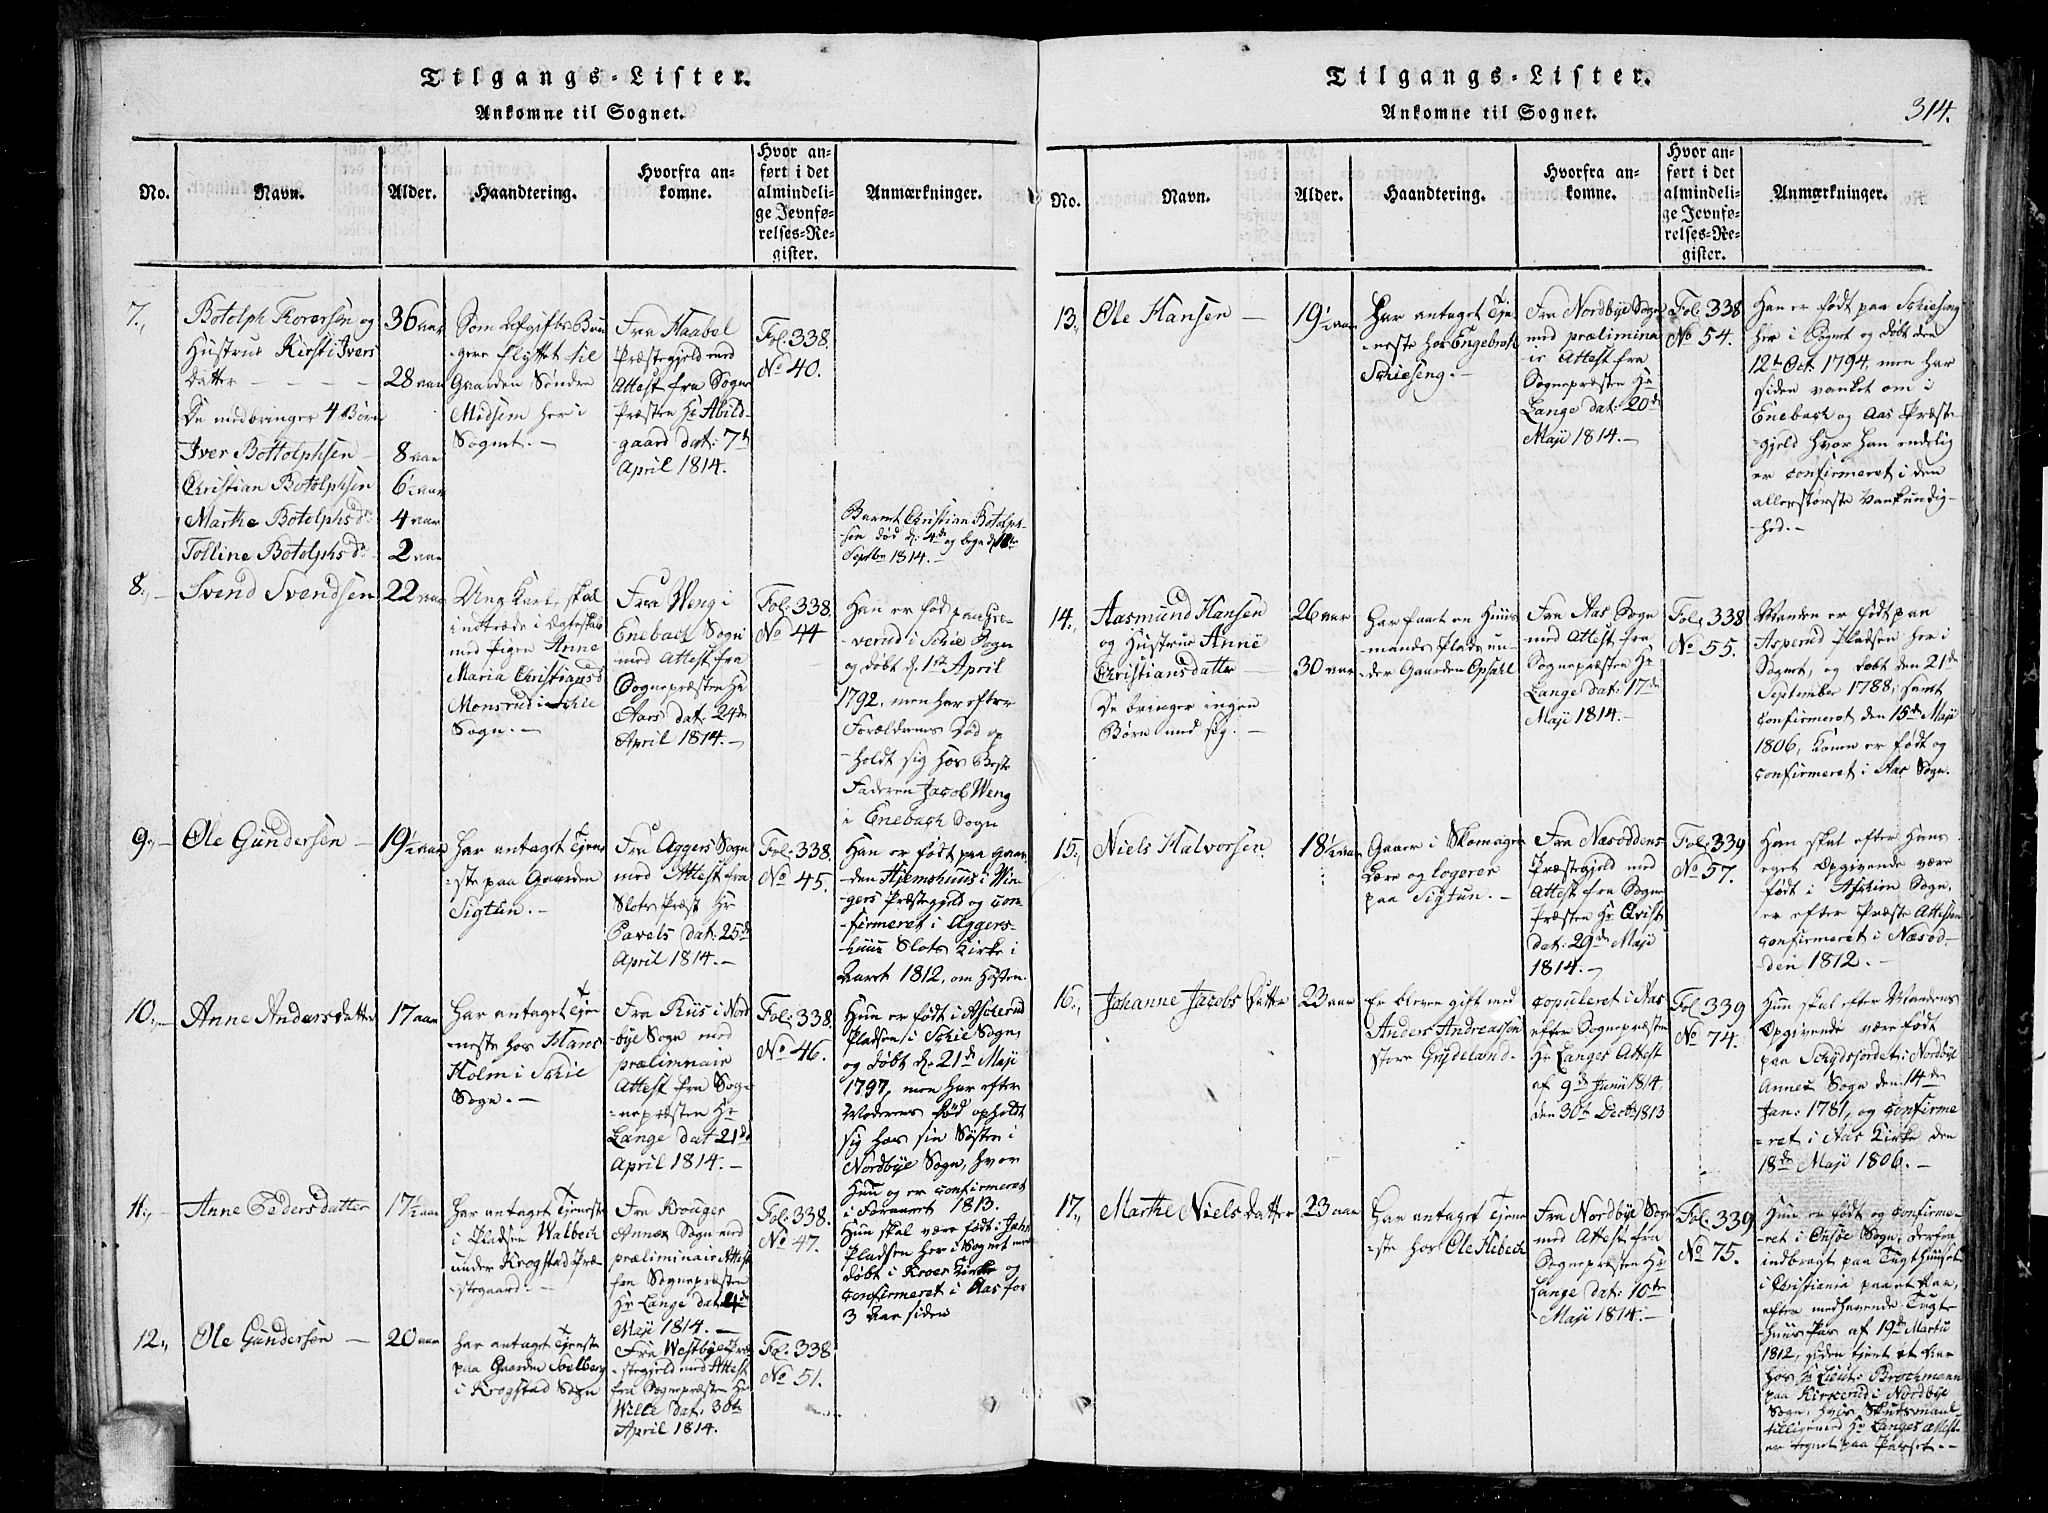 Tilgangs-Lister.
Ankomne til Sognet.
No.
Navn.
Alder.
Haandtering.
Hvorfra an-
komne.
Hvor an-
ført i det
almindeli-
ge Jevnfø-
relses-Re-
gister.
Anmærkninger.
7.,
Botolph Torersen og
Hustrue Kirsti Ivers
datter - - - -
De medbringer 4 Børn
Iver Bottolphsen -
Christian Botolphsen
Marthe Botolphs Dr
Tolline Botolphs Dr
36 aar
28 aar
8 aar
6½ aar
4 aar
2 aar
Som Lefgifts Bru
-gere flyttet til
Gaarden Søndre
Midsem her i
Sognet. -
Fra Haabel
Præstegjeld med
Attest fra Sogne
Præsten Hr Abild-
gaard dat: 7de
April 1814.
Fol: 338.
No 40.
Barnet Christian Botolph-
sen død d. 4de og begr d.
Septbr 1814. -
8., -
Svend Svendsen
22 aar
Ung Karl, skal
indtræde i Ægteskab
med Pigen Anne
Maria Christiansd
Monsrud i Schie
Sogn. -
Fra Weng i
Enebach Sogn
med Attest fra
Sognepræsten Hr
Aars dat: 24de
April 1814. -
Fol: 338.
No 44
Han er fød paa
-verud i Schie Sogn
og døbt d. 1ste April
1792, men har efter
Forældrenes Død op
-holdt sig hos Beste
Faderen Jacob Weng
i Enebach Sogn
9., -
Ole Gundersen -
19½ aar
Har antaget Tjene
-ste paa Gaarden
Sigtun. -
Fra Aggers Sogn
med Attest fra
Slots Præst Hr
Pavels dat: 25de
April 1814. -
Fol: 338.
No 45.
Han er født paa Gaar-
den Hjemshuus i Win-
gers Præstegjeld og con-
-firmeret i Aggers-
-huus Slots Kirke i
Aaret 1812, om Høsten.
10., -
Anne Andersdatter
17 aar
Har antaget Tje
-neste hos Hans
Holm i Schie
Sogn. -
Fra Riis i Nord
bye Sogn med
prælimnair
Attest fra Sog-
-nepræsten Hr
Lange dat 21de
April 1814. -
Fol: 338.
No 46.
Hun er født i Ascherud
Pladsen i Schie Sogn,
og døbt d. 21de Maji
1797, men har efter
Moderens Død opholdt
sig hos sin Søster i
Nordbye Sogn, hvor
Hun og er confirmeret
i Foraaret 1813.
11., -
Anne Pedersdatter
17½ aar
Har antaget Tjeneste
i Pladsen Walbech
under Krogstad Præ-
-stegaard. -
Fra Krouger
Annex Sogn med
præliminair Attest
fra Sognepræsten
Hr Lange dat
Maji 1814. -
Fol: 338.
No 47.
Hun skal være født i
Pladsen her i Sognet men
døbt i Kroer Kirke og
confirmeret i Aas for
3 Aar siden
12.,
Ole Gundersen -
20 aar
Har antaget Tjeneste
paa Gaarden Solberg
i Krogstad Sogn
Fra Westbye Præ
-stegjeld med Attest
fra Sognepræsten Hr
Wille dat: 30te
April 1814.
Fol: 338
No 51.
Tilgangs-Lister.
Ankomne til Sognet.
314.
No.
Navn.
Alder.
Haandtering.
Hvorfra an-
komne.
Hvor an-
ført i det
almindeli-
ge Jevnfø-
relses-Re-
gister.
Anmærkninger.
13.,
Ole Hansen -
19½ aar
Har antaget Tje
-neste hos Engebreth
Schieseng. -
Fra Nordbye Sogn
med prælimina
ir Attest fra
Sognepræsten Hr
Lange dat: 20de
Maji 1814. -
Fol: 338
No 54.
Han er født paa Schieseng
her i Sognet og døbt den
12te Oct 1794, men har
siden vanket om i
Enebach og Aas Præste-
gjeld hvor han endelig
er confirmeret i den
allerstørste Vankundig-
-hed. -
14.,
Aasmund Hansen
og Hustrue Anne
Christiansdatter
De bringer ingen
Børn med sig. -
26 aar
30 aar
Har faaet en Huus
-mands Plads un-
-der Gaarden Opsall
Fra Aas Sogn
med Attest fra
Sognepræsten Hr
Lange dat: 17de
Maji 1814. -
Fol: 338
No 55.
Manden er født paa
Asperud Pladsen her i
Sognet, og døbt den 21de
September 1788, samt
confirmeret den 15de Maji
1806, Konen er født og
confirmeret i Aas Sogn.
15.,
Niels Halvorsen.
18½ aar
Gaaer i Skomager
Lære og logerer
paa Sigtun. -
Fra Næsoddens
Præstegjeld med
Attest fra Sogne
Præsten Hr Qvist
dat: 29de Maji
1814. -
Fol: 339
No 57.
Han skal efter Hans
eget Opgivende være
født i Aschim Sogn,
er efter Præste Attesten
confirmeret i Næsod-
-den 1812. -
16.,
Johanne Jacobs Datter
23 aar
Er bleven gift med
Anders Andreassen
store Grydeland. -
copuleret i Aas
efter Sognepræsten
Hr Langes Attest
af 9de Junii 1814
den 30te Decbr 1813
Fol: 339
No 74.
Hun skal efter Mandens
Opgivende være født
paa Schydsjordet i Nordbye
Annex Sogn den 14de
Jan: 1781, og confirme
-ret i Aas Kirke den
18de Maji 1806. -
17.,
Marthe Nielsdatter
23 aar
Har antaget Tjene
-ste hos Ole Hebech
Fra Nordbye Sogn
med Attest fra
Sognepræsten Hr
Lange dat: 10de
Maji 1814. -
Fol: 339
No 75.
Hun er født og confirme-
-ret i Onsøe Sogn, derfra
indbragt paa Tugthuuset
i Christiania paa et Aar,
efter medhavende Tugt-
-huus Pas af 19de Martii
1812, siden tjent et Aar
hos Pr Lieut: Brochmann
paa Kirkerud i Nordbye
Sogn, hvis Skudsmaal
tilligemed Hr Langes Attest
er tegnet paa Passet. -